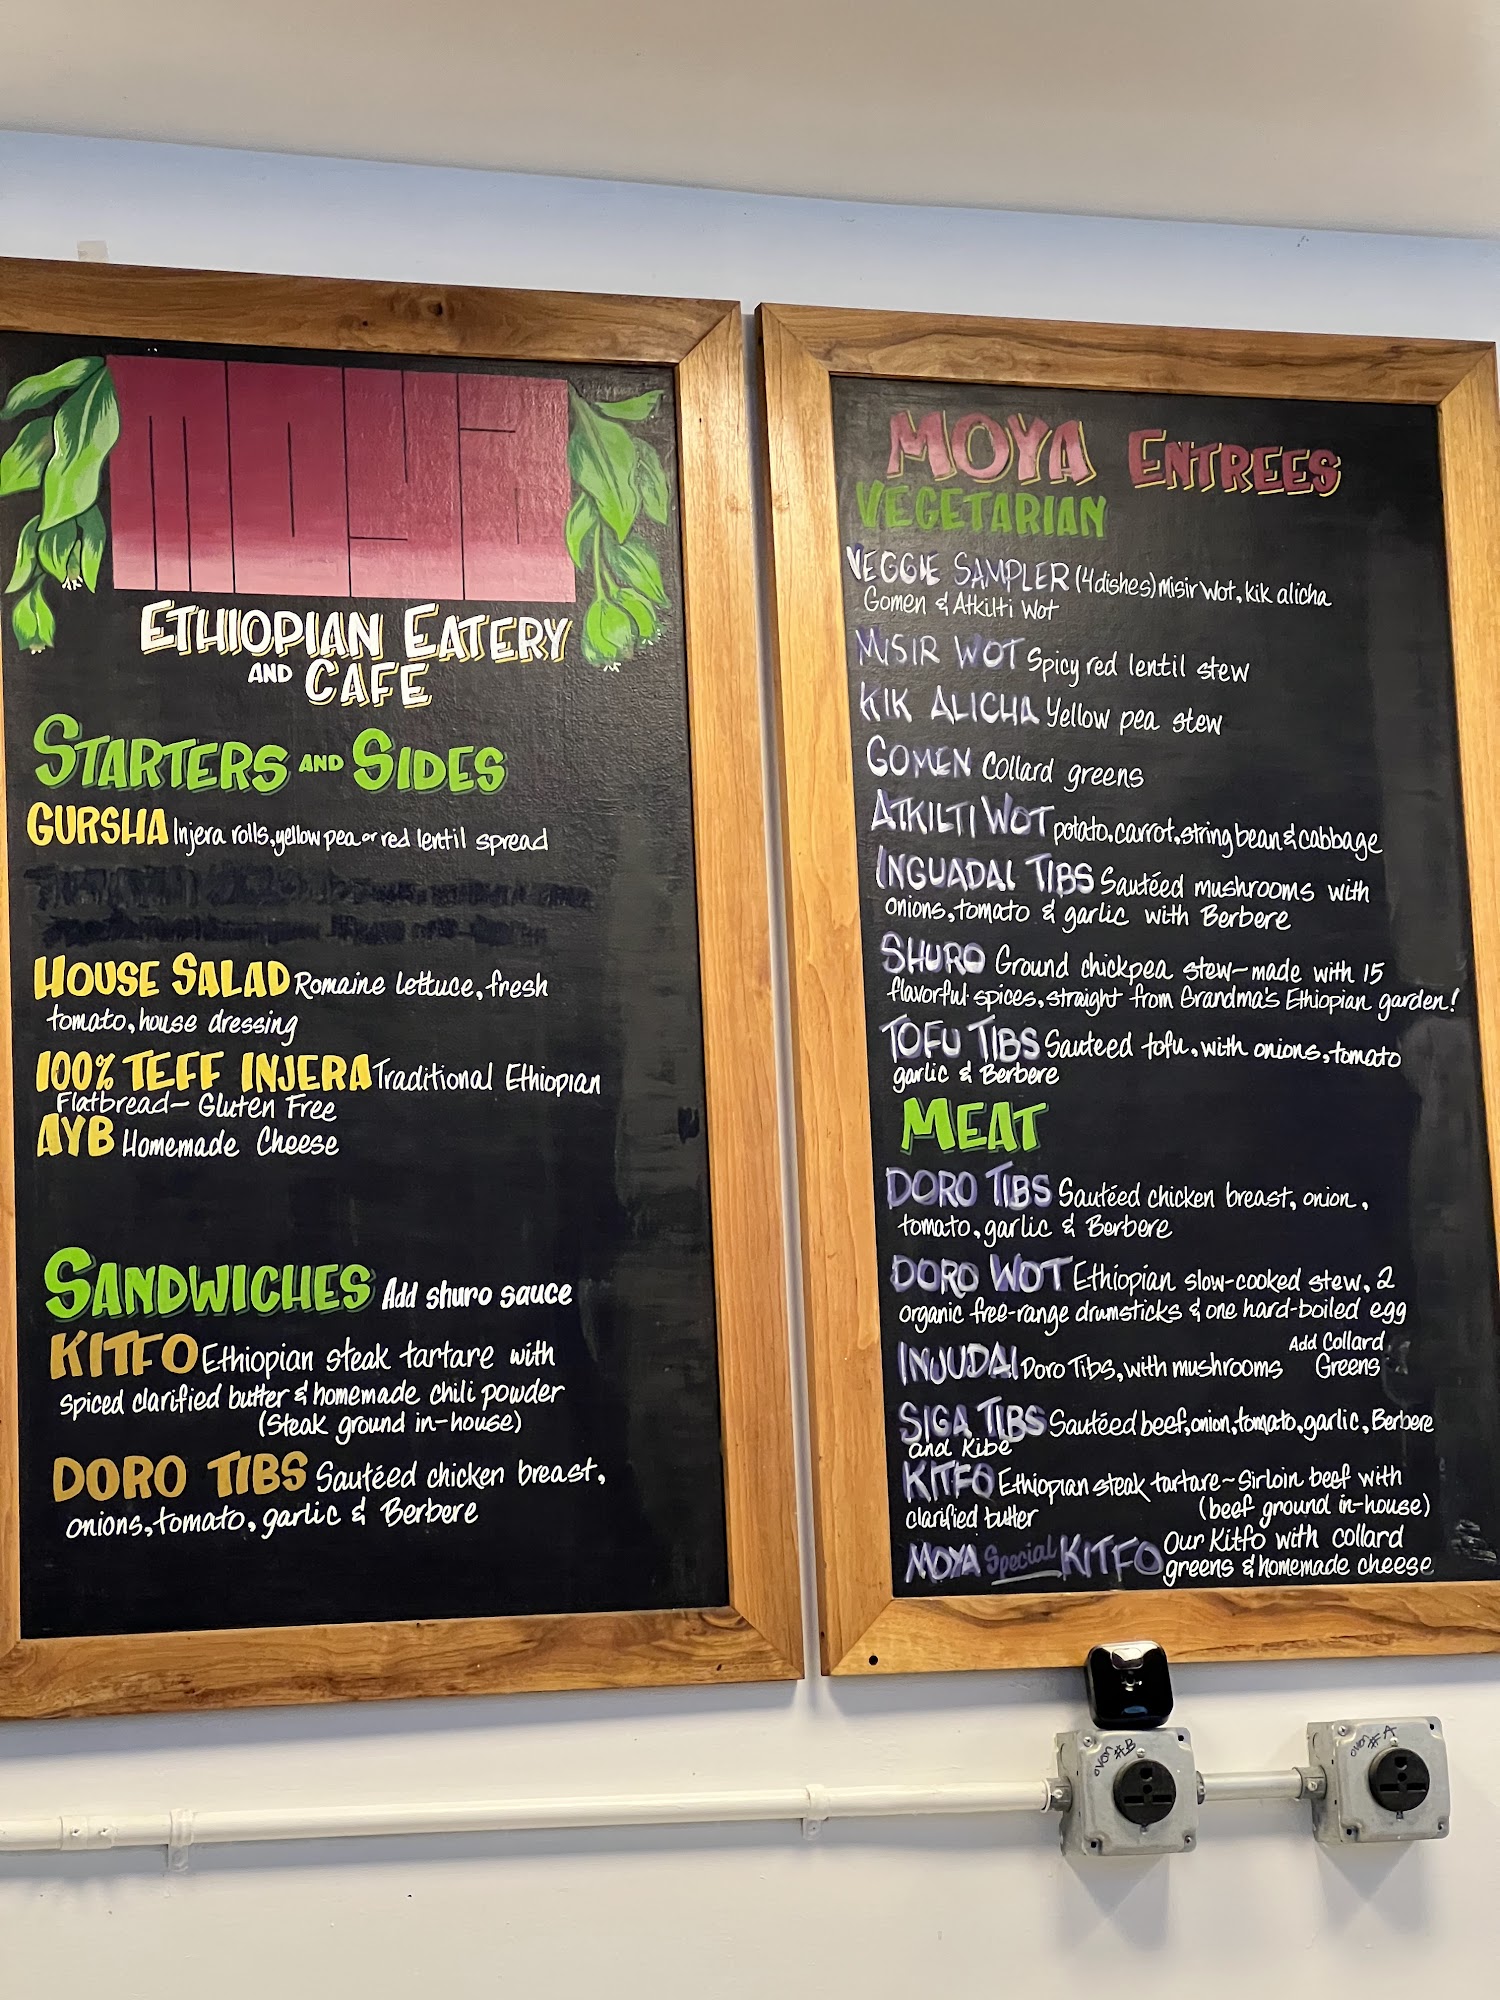 moya
ETHIOPIAN EATERY
AND CAFE
STARTERS AND SIDES
GURSHA Injera rolls, yellow pea or red lentil spread
HOUSE SALAD Romaine lettuce, fresh
tomato, house dressing
100% TEFF INJERA Traditional Ethiopian
Flatbread— Gluten Free
AYB Homemade Cheese
SANDWICHES Add shuro sauce
KITFO Ethiopian steak tartare with
spiced clarified butter & homemade chili powder
(Steak ground in-house)
DORO TIBS Sautéed chicken breast,
onions, tomato, garlic & Berbere
MOYA ENTREES
VEGETARIAN
VEGGIE SAMPLER (4 dishes) Misir Wot, kik alicha
Gomen & Atkilti Wot
MISIR WOT Spicy red lentil stew
KIK ALICHA Yellow pea stew
GOMEN Collard greens
ATKILTI WOT potato, carrot, string bean & cabbage
INGUADAI TIBS Sautéed mushrooms with
onions, tomato & garlic with Berbere
SHURO Ground chickpea stew—made with 15
flavorful spices, straight from Grandma's Ethiopian garden!
TOFU TIBS Sauteed tofu, with onions, tomato
garlic & Berbere
MEAT
DORO TIBS Sautéed chicken breast, onion,
tomato, garlic & Berbere
DORO WOT Ethiopian slow-cooked stew, 2
organic free-range drumsticks & one hard-boiled egg
INJUDAI Doro Tibs, with mushrooms Add Collard
Greens
SIGA TIBS Sautéed beef, onion, tomato, garlic, Berbere
and Kibe
KITFO Ethiopian steak tartare~Sirloin beef with
clarified butter (beef ground in-house)
MOYA Special KITFO Our Kitfo with collard
greens & homemade cheese
oven #B
oven #A